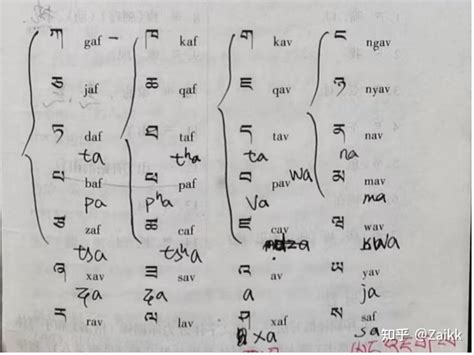 ཀ gaf – ཁ kaf ག kav ང ngav
ཅ jaf ཆ qaf ཇ qav ཉ nyav
ཏ daf ཐ taf ད tav ན nav
ta tʰa ta na
པ baf ཕ paf བ pav wa མ mav
pa pʰa va ma
ཙ zaf ཚ caf ཛ cav ཝ wav
tsa tsʰa dza ʁwa
ཞ xav ཟ sav འ av ཡ yav
a ja
ར rav ལ lav ཤ xaf ས saf
xa sa
知乎 @Zaikk